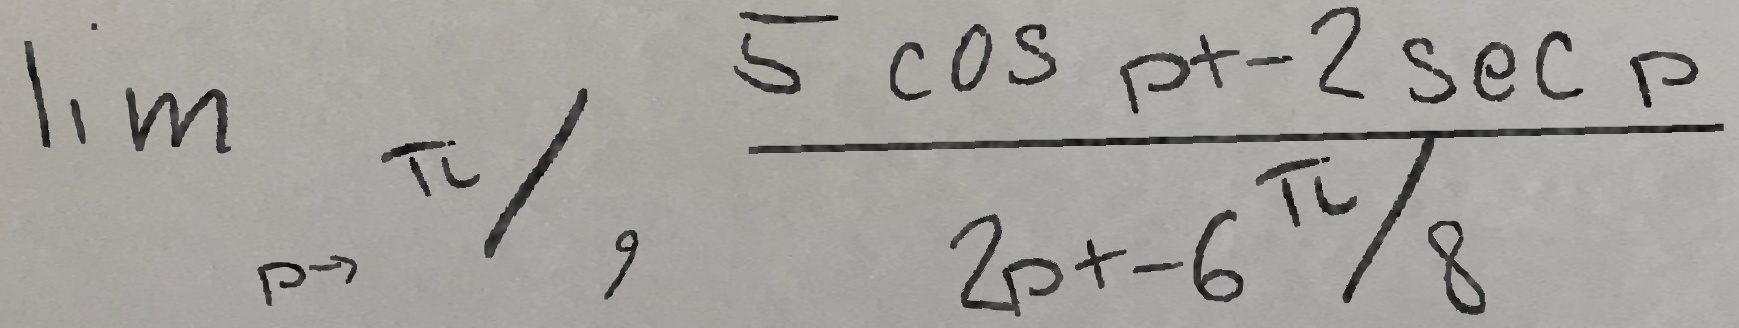 lim p→ π/9 5 cos p+-2 sec p / 2p+-6 π/8